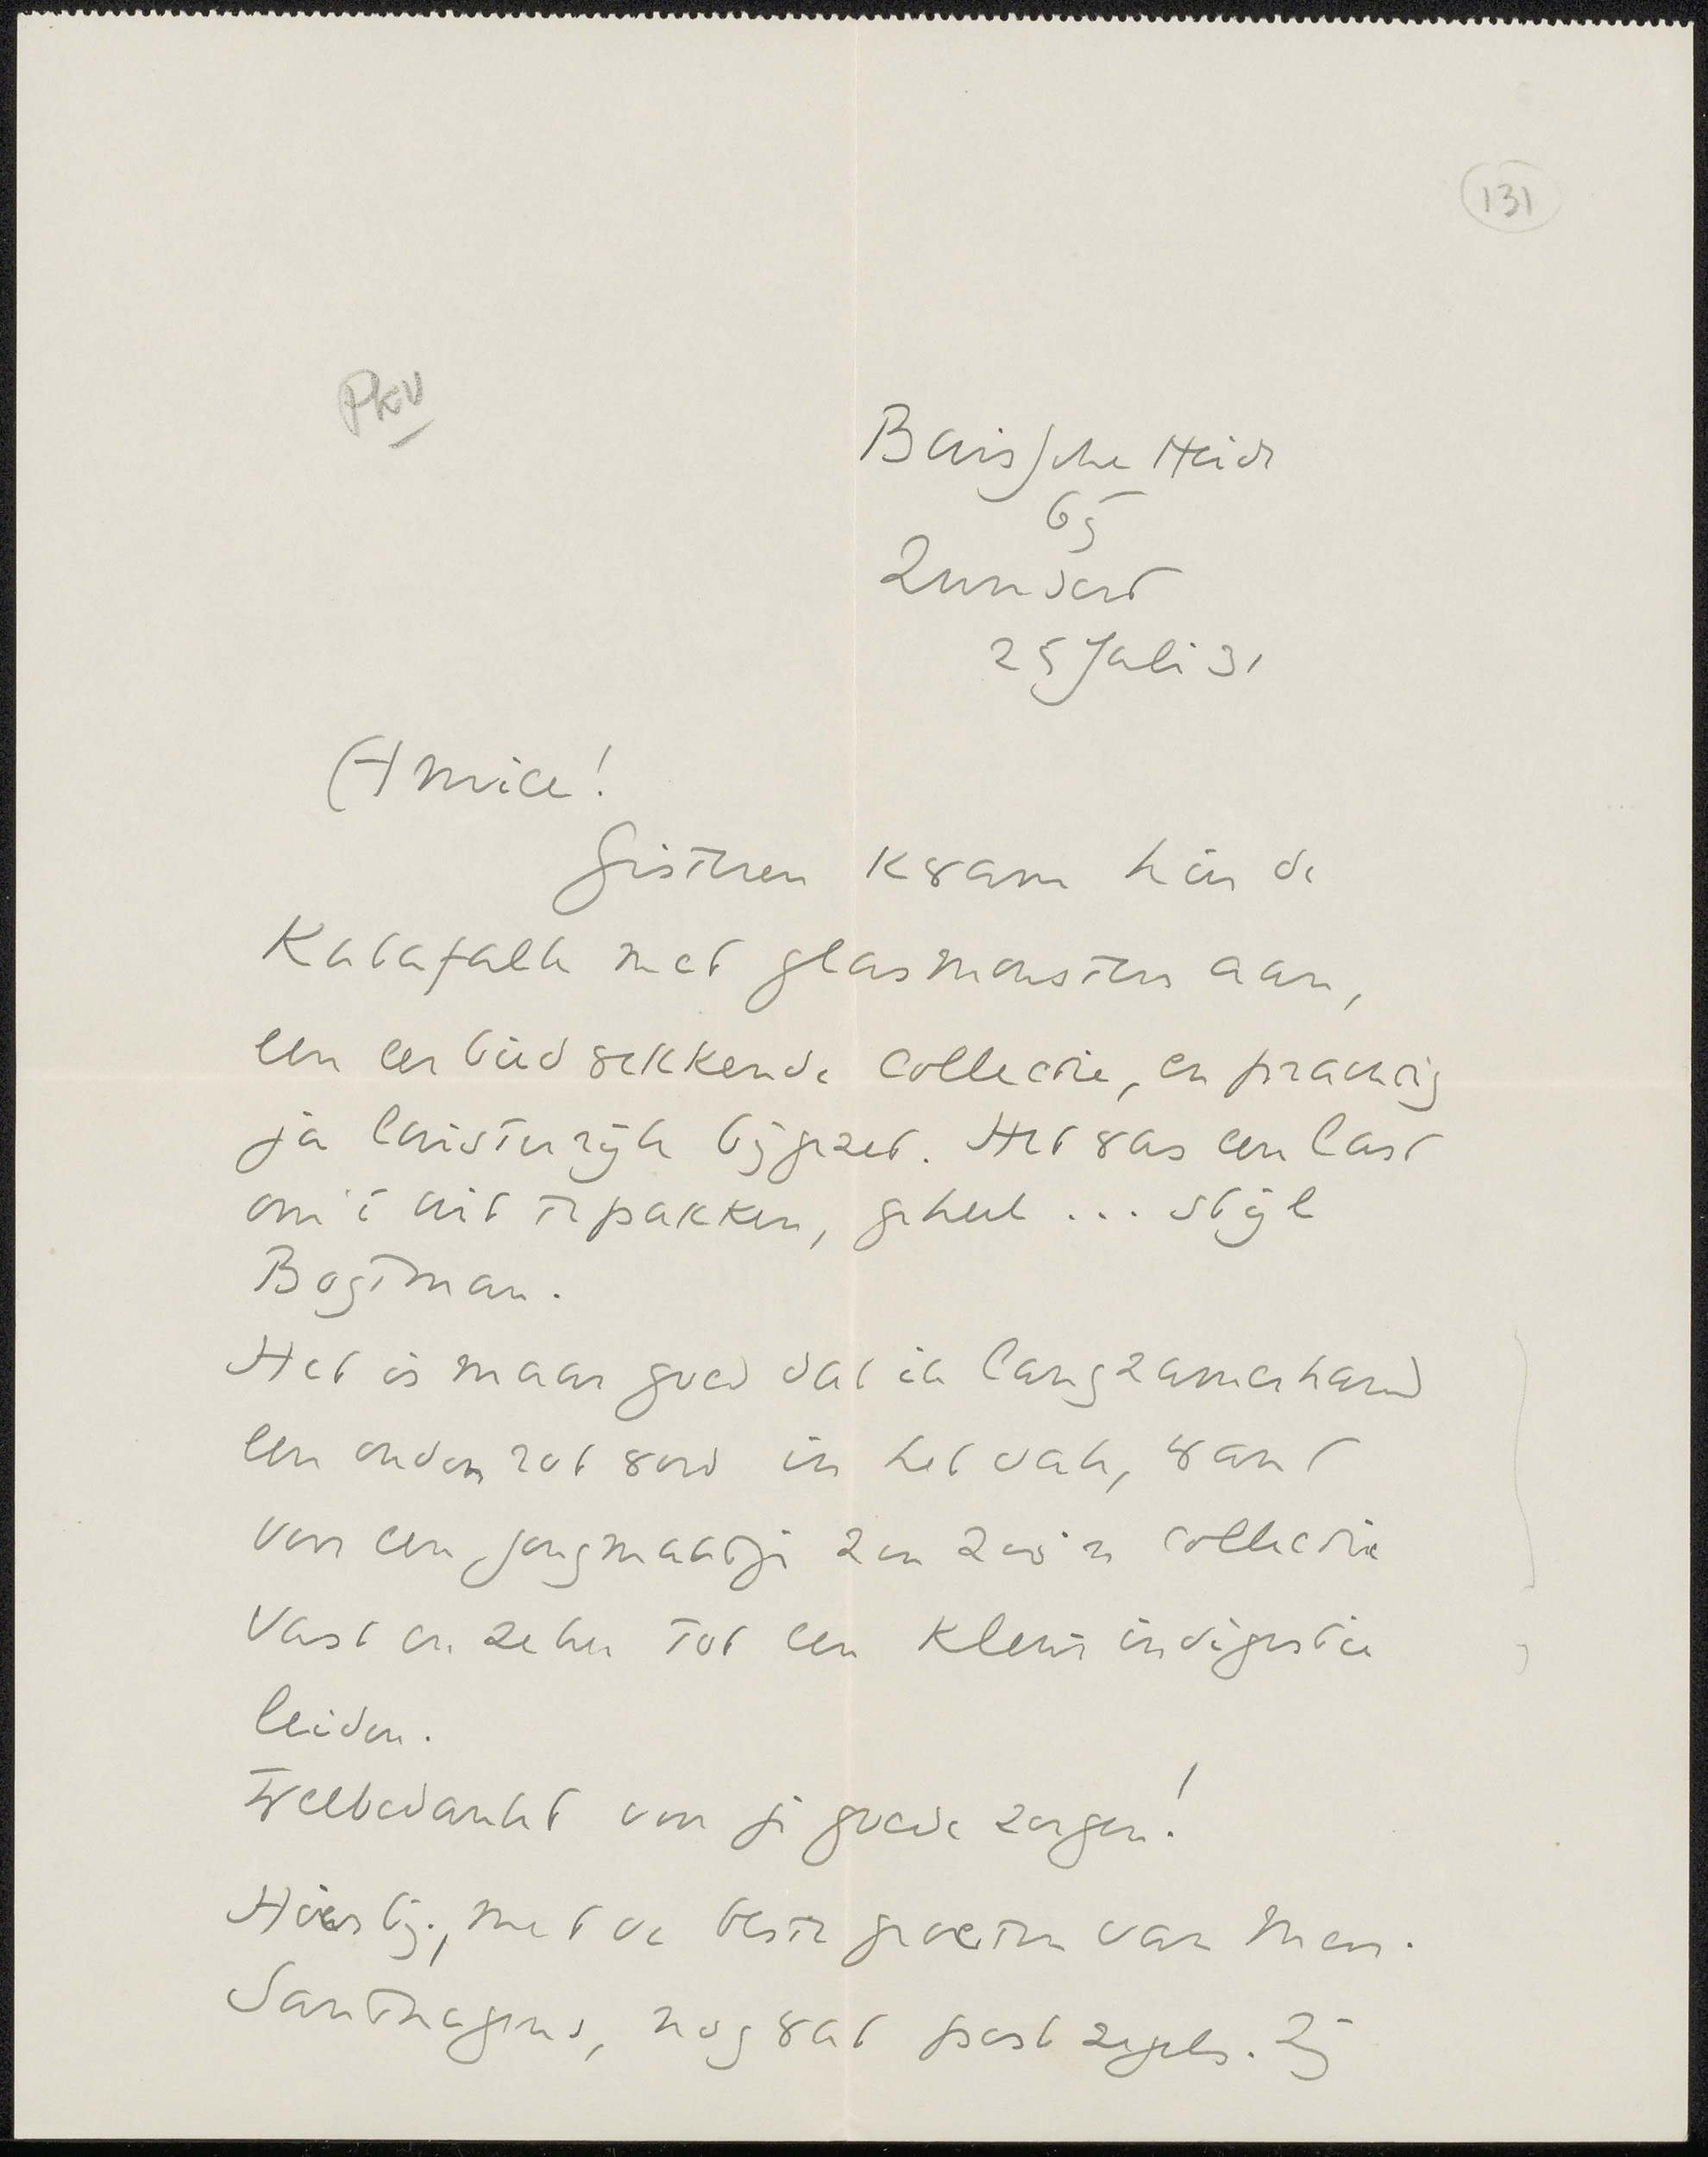 131
PKV
Buissche Heide
65
Zundert
25 Juli 31
Amice!
Gisteren kwam hier de
Katafalk met glasmonsters aan,
een eerbiedwekkende collectie, en prachtig
ja luisterrijk bijgezet. Het was een last
om 't uit te pakken, geheel ... stijl
Bogtman.
Het is maar goed dat ik langzamerhand
een ouden rot word in het vak, want
voor een jongmaatje zou zoo'n collectie
vast en zeker tot een kleine indigestie
leiden.
Welbedankt voor je goede zorgen!
Hierbij, met de beste groeten van Mevr.
Santhagens, nog wat postzegels. Zij